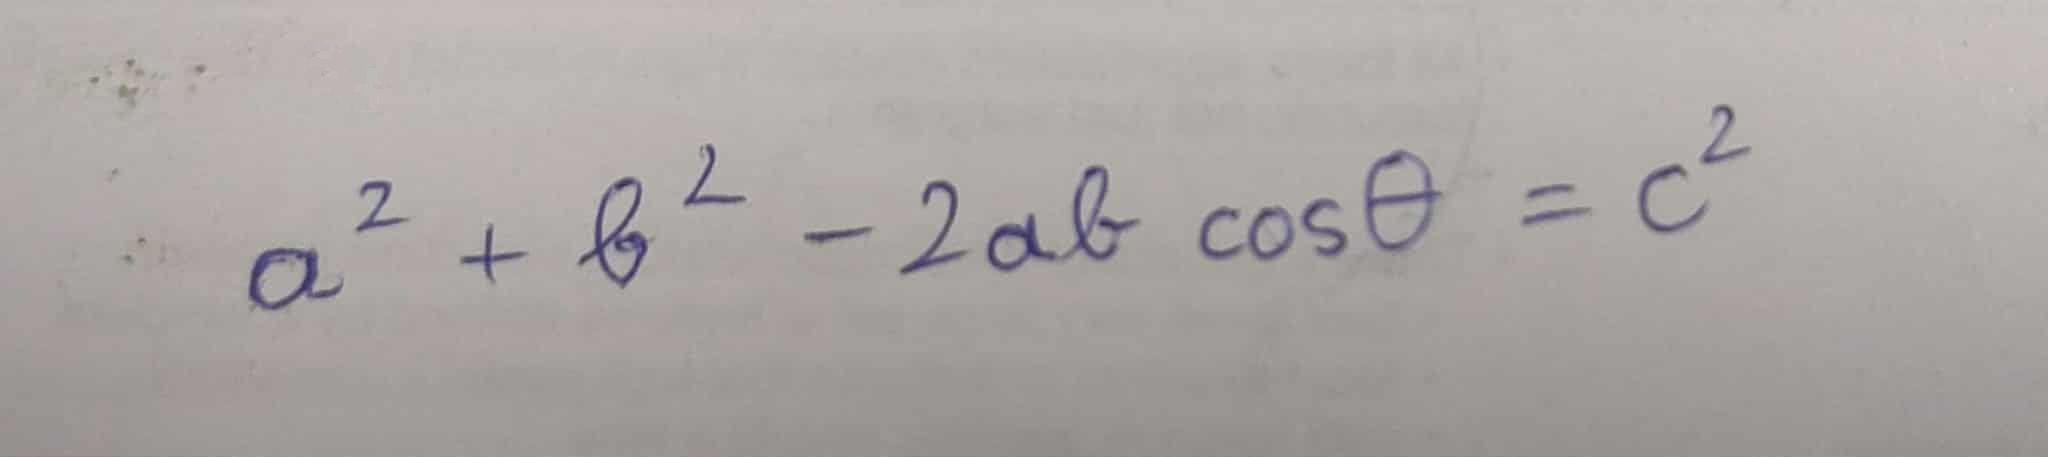 a² + b² - 2ab cosθ = c²